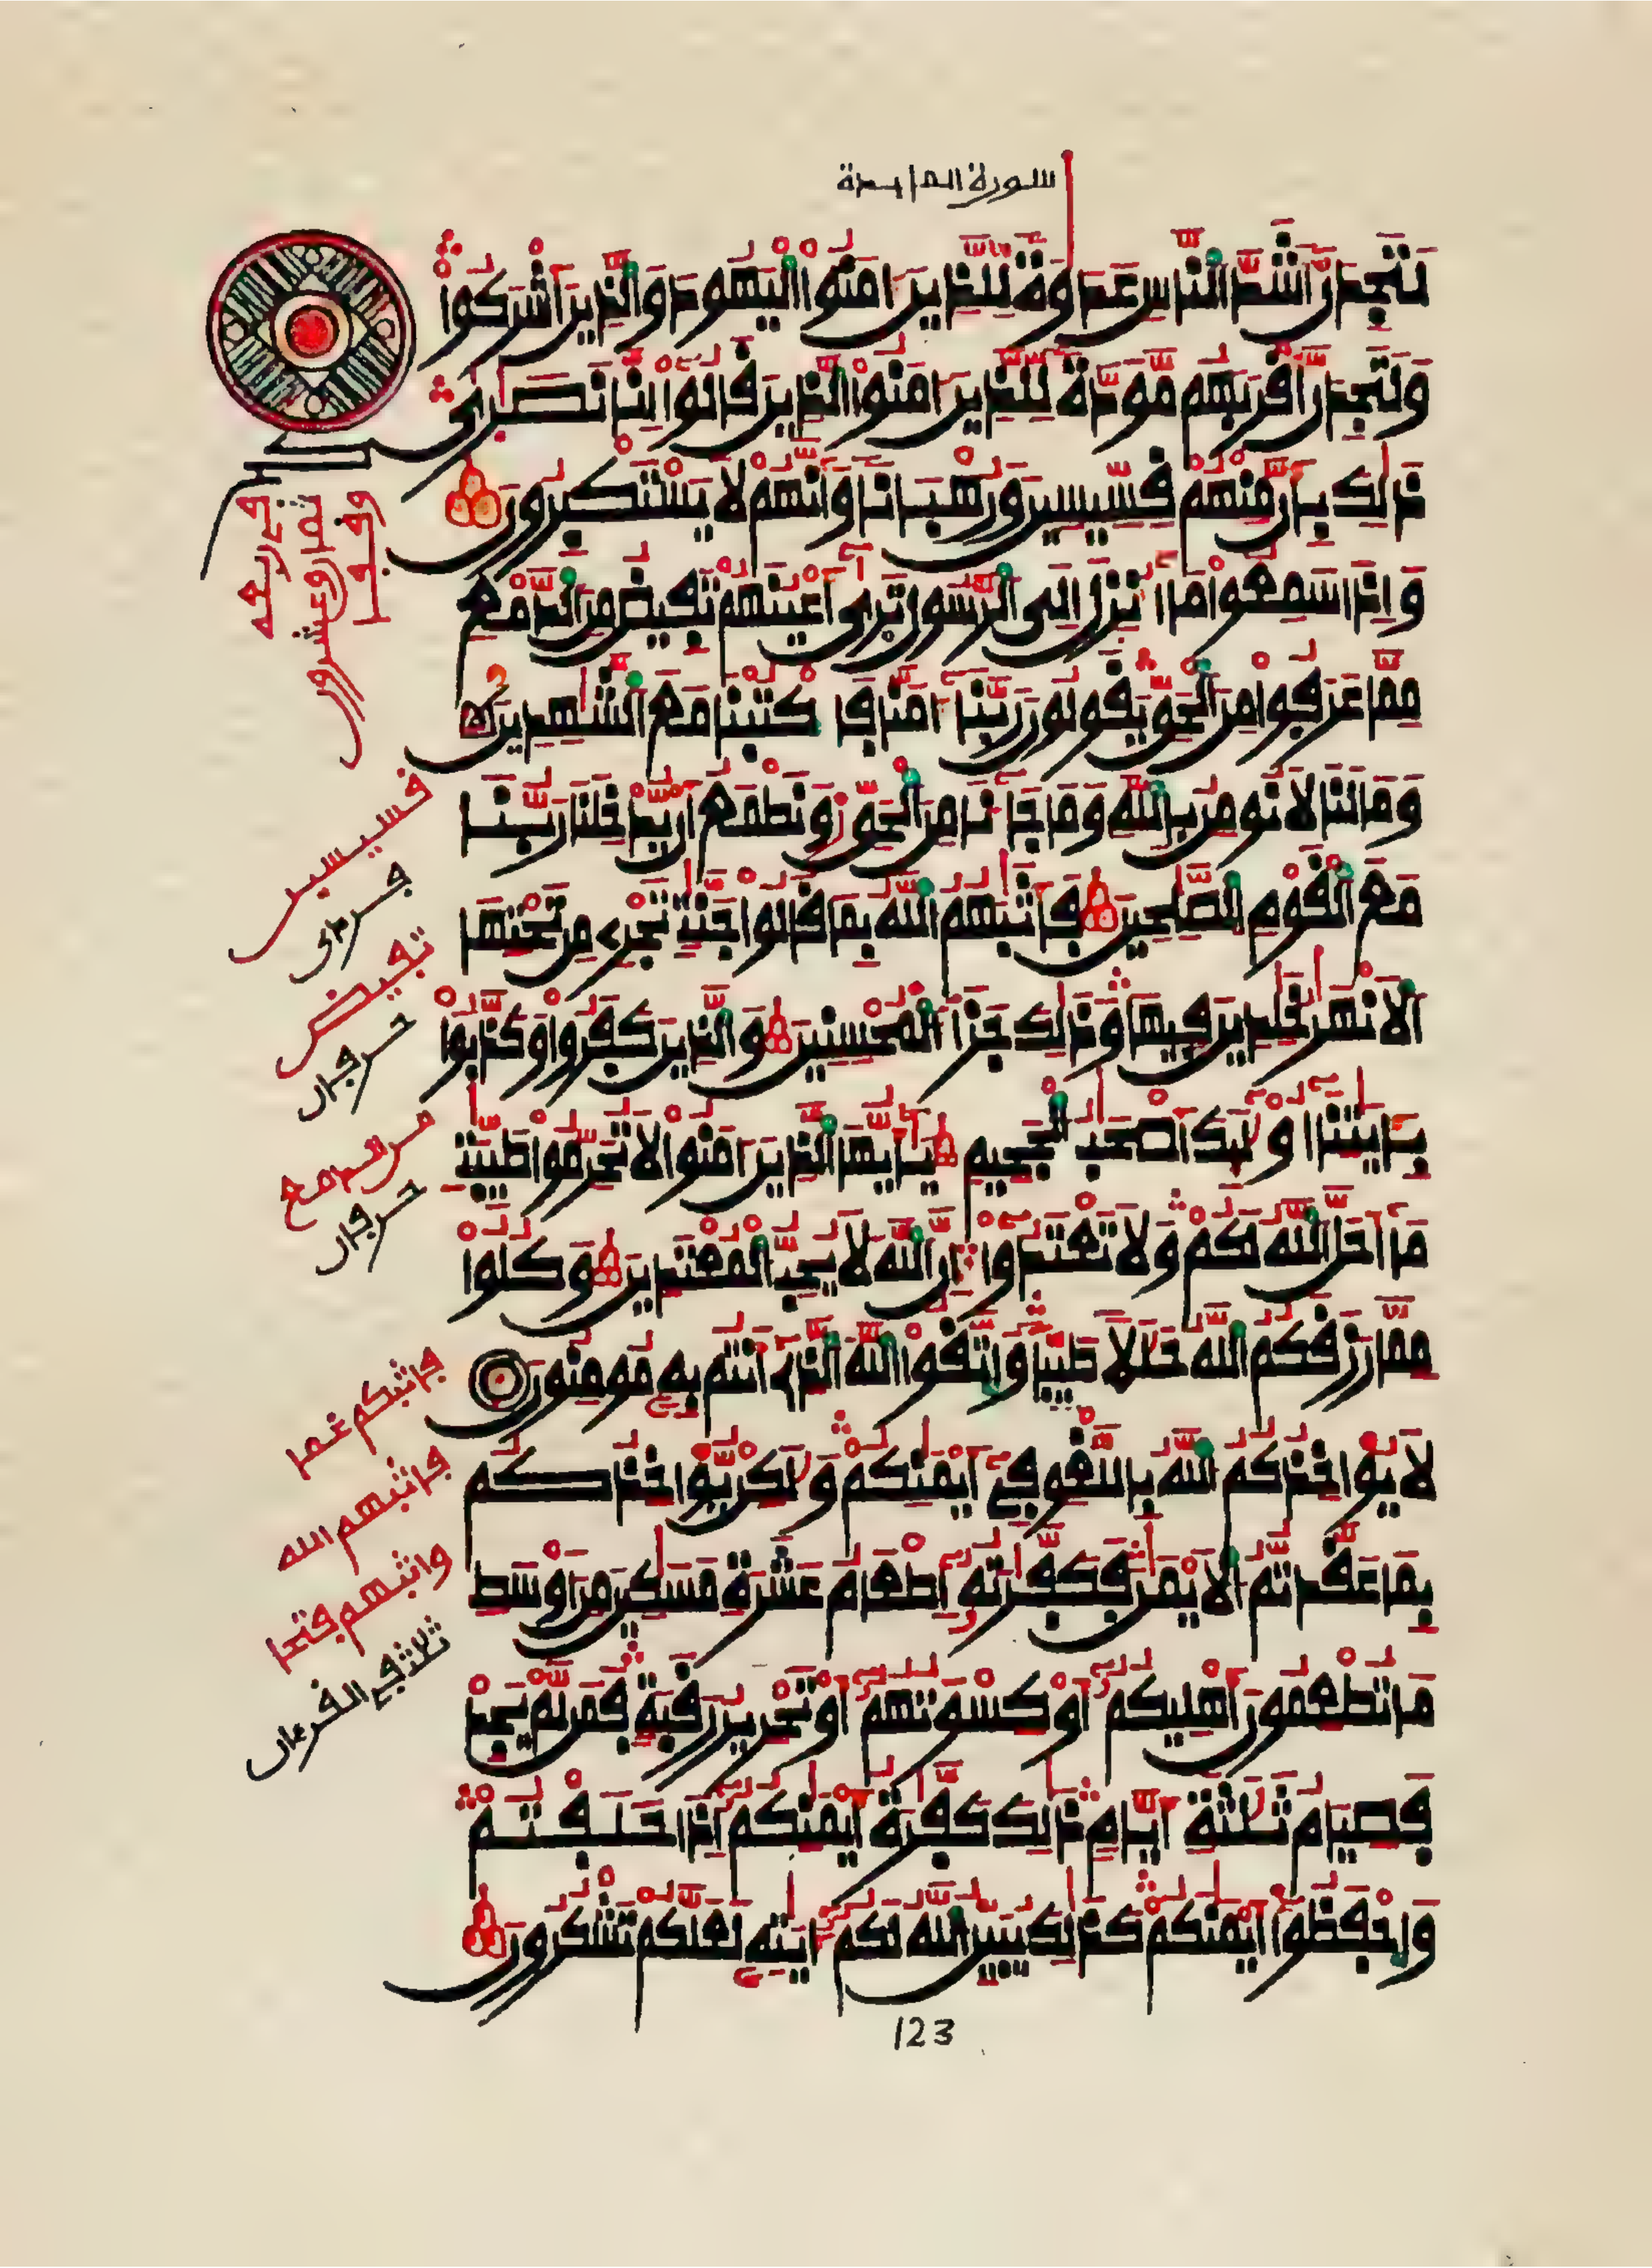 سورة المايدة
لَتَجِدَنَّ أَشَدَّ النَّاسِ عَدَاوَةً لِّلَّذِينَ ءَامَنُوا الْيَهُودَ وَالَّذِينَ أَشْرَكُوا
وَلَتَجِدَنَّ أَقْرَبَهُم مَّوَدَّةً لِّلَّذِينَ ءَامَنُوا الَّذِينَ قَالُوا إِنَّا نَصَٰرَىٰ
ذَٰلِكَ بِأَنَّ مِنْهُمْ قِسِّيسِينَ وَرُهْبَانًا وَأَنَّهُمْ لَا يَسْتَكْبِرُونَ
وَإِذَا سَمِعُوا مَا أُنزِلَ إِلَى الرَّسُولِ تَرَىٰ أَعْيُنَهُمْ تَفِيضُ مِنَ الدَّمْعِ
مِمَّا عَرَفُوا مِنَ الْحَقِّ يَقُولُونَ رَبَّنَا ءَامَنَّا فَاكْتُبْنَا مَعَ الشَّٰهِدِينَ
وَمَا لَنَا لَا نُومِنُ بِاللَّهِ وَمَا جَاءَنَا مِنَ الْحَقِّ وَنَطْمَعُ أَن يُدْخِلَنَا رَبُّنَا
مَعَ الْقَوْمِ الصَّٰلِحِينَ فَأَثَٰبَهُمُ اللَّهُ بِمَا قَالُوا جَنَّٰتٍ تَجْرِي مِن تَحْتِهَا
الْأَنْهَٰرُ خَٰلِدِينَ فِيهَا وَذَٰلِكَ جَزَاءُ الْمُحْسِنِينَ وَالَّذِينَ كَفَرُوا وَكَذَّبُوا
بِـَٔايَٰتِنَا أُوْلَٰئِكَ أَصْحَٰبُ الْجَحِيمِ يَٰأَيُّهَا الَّذِينَ ءَامَنُوا لَا تُحَرِّمُوا طَيِّبَٰتِ
مَا أَحَلَّ اللَّهُ لَكُمْ وَلَا تَعْتَدُوا إِنَّ اللَّهَ لَا يُحِبُّ الْمُعْتَدِينَ وَكُلُوا
مِمَّا رَزَقَكُمُ اللَّهُ حَلَٰلًا طَيِّبًا وَاتَّقُوا اللَّهَ الَّذِي أَنتُم بِهِ مُومِنُونَ
لَا يُوَاخِذُكُمُ اللَّهُ بِاللَّغْوِ فِي أَيْمَٰنِكُمْ وَلَٰكِن يُوَاخِذُكُم
بِمَا عَقَّدتُّمُ الْأَيْمَٰنَ فَكَفَّٰرَتُهُ إِطْعَامُ عَشَرَةِ مَسَٰكِينَ مِنْ أَوْسَطِ
مَا تُطْعِمُونَ أَهْلِيكُمْ أَوْ كِسْوَتُهُمْ أَوْ تَحْرِيرُ رَقَبَةٍ فَمَن لَّمْ يَجِدْ
فَصِيَامُ ثَلَٰثَةِ أَيَّامٍ ذَٰلِكَ كَفَّٰرَةُ أَيْمَٰنِكُمْ إِذَا حَلَفْتُمْ
وَاحْفَظُوا أَيْمَٰنَكُمْ كَذَٰلِكَ يُبَيِّنُ اللَّهُ لَكُمْ ءَايَٰتِهِ لَعَلَّكُمْ تَشْكُرُونَ
ثمان وعشرون
قسيسين
تفيض
حرفان
من الدمع
حرفان
فاثبكم غما
فاثبهم الله
واثبهم فتحا
ثلاث في القرءان
123